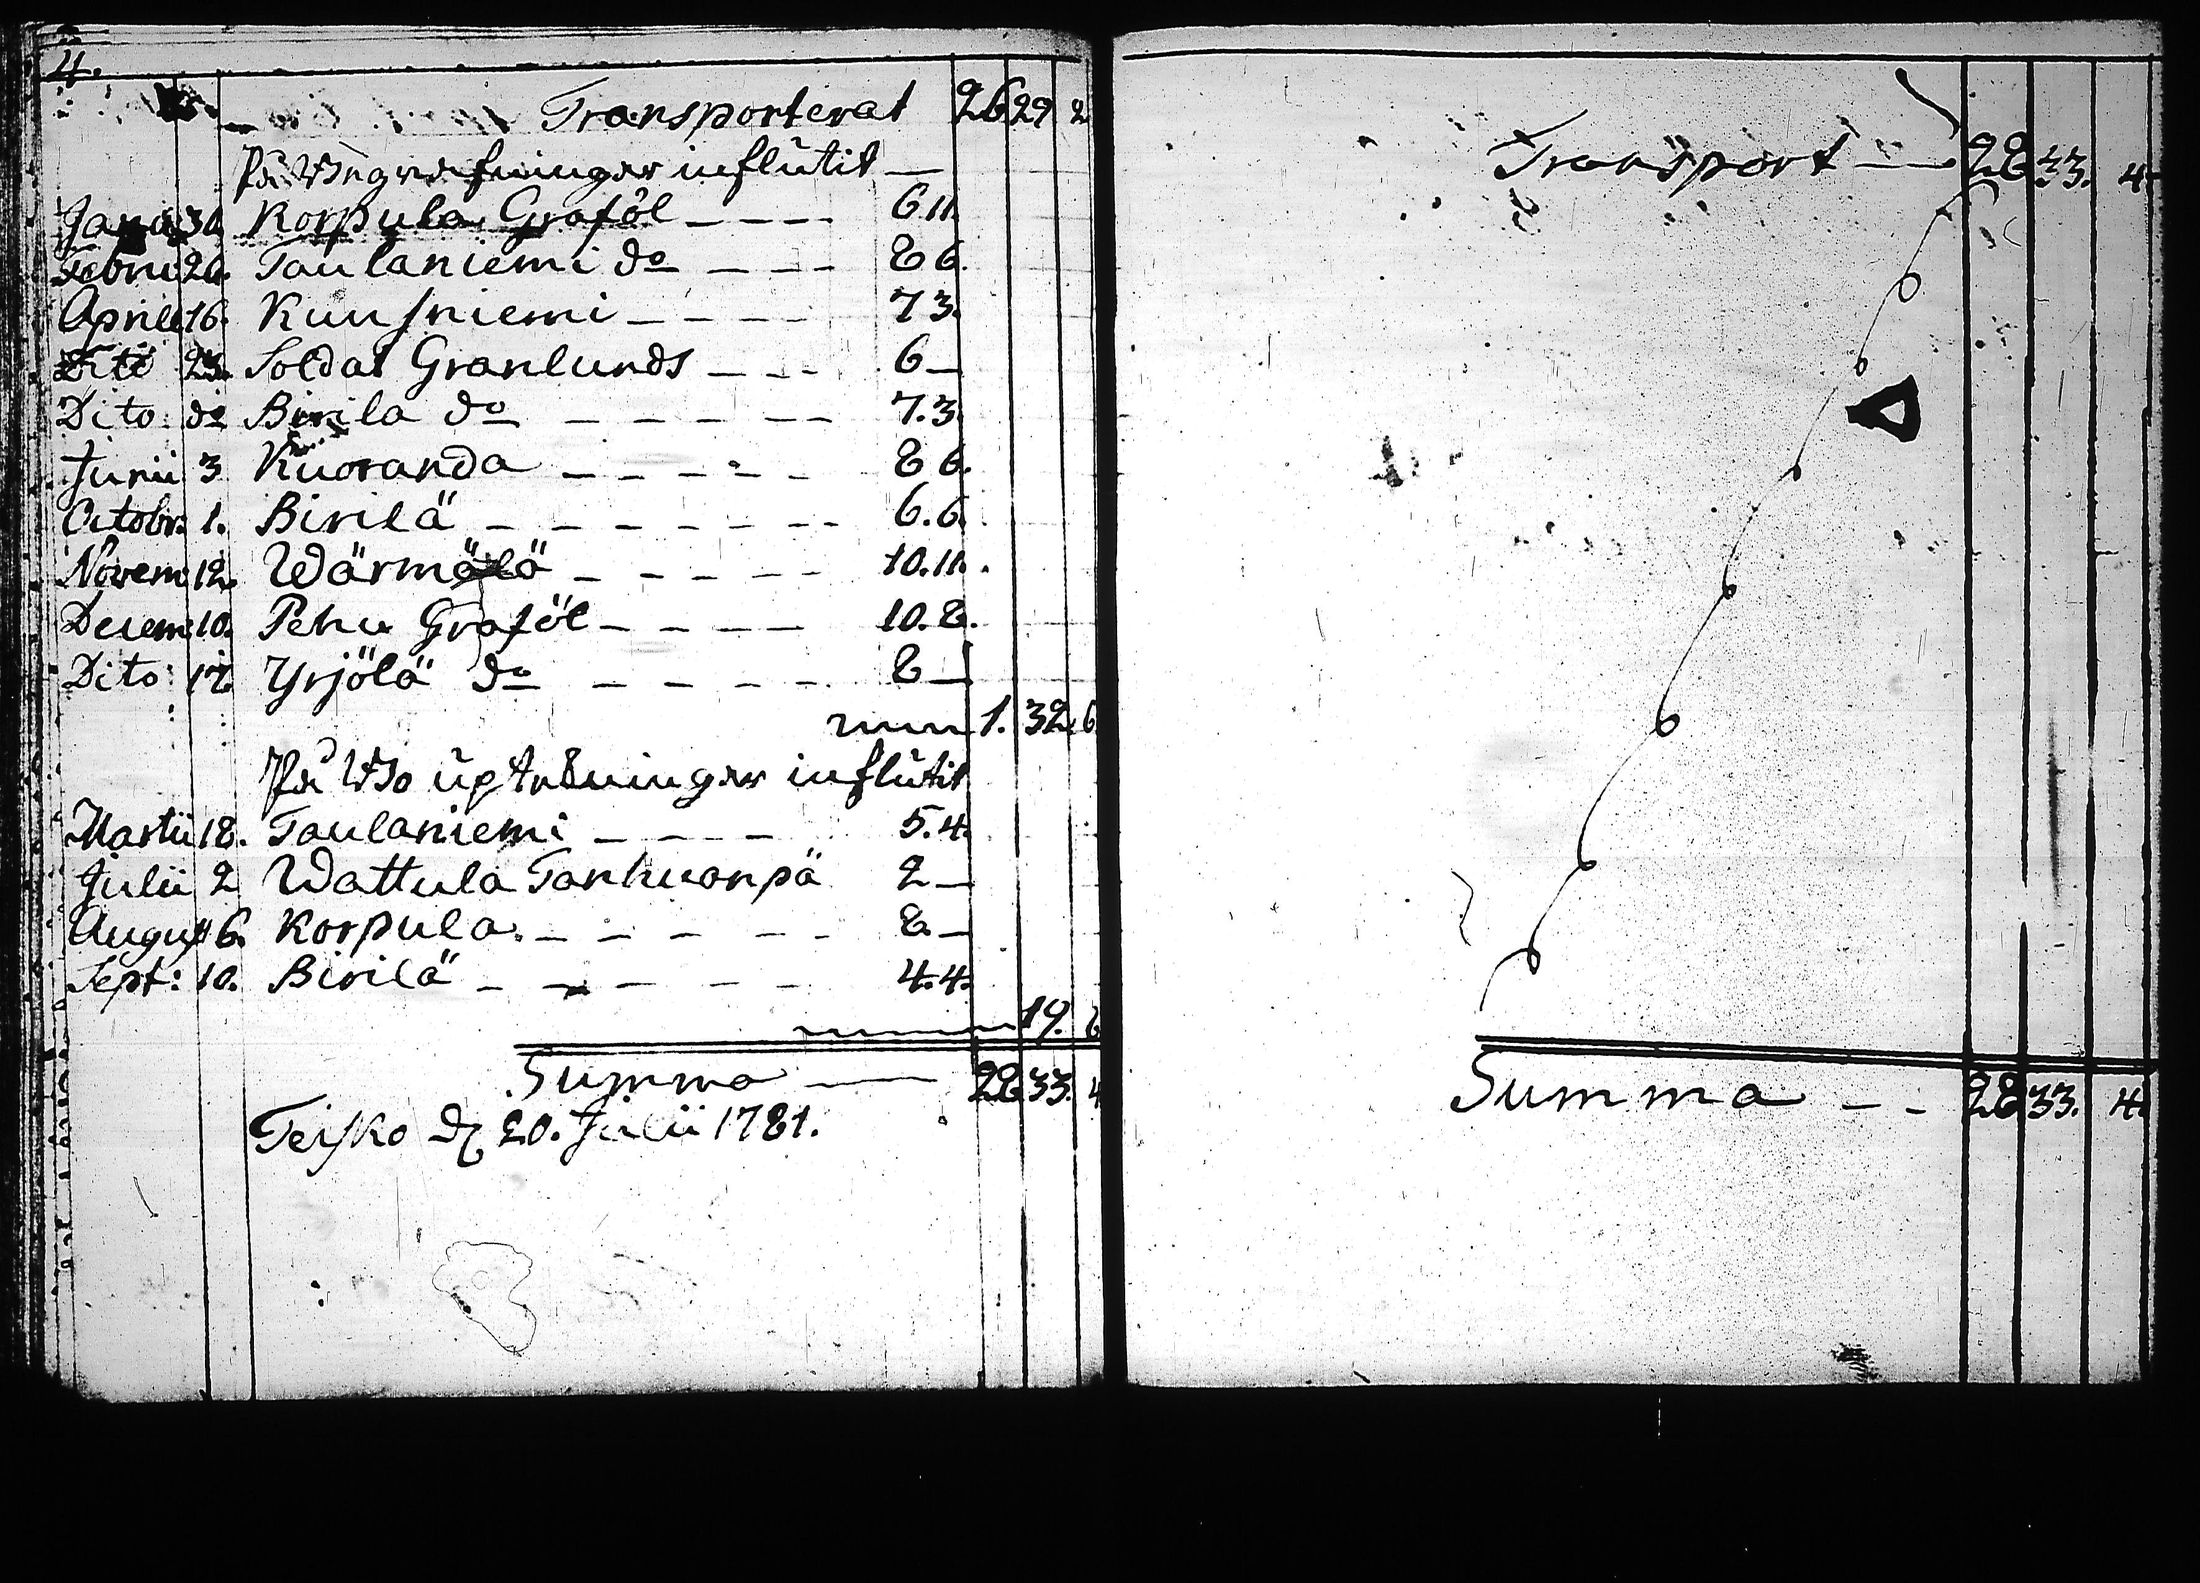 4.
Transporterat 26 29 2
På Wingrafningar influtit —
Janua 30 Korpula Graföl — — — — 6 11.
Febru: 20. Taulaniemi do — — — 8 6.
Aprill 16. Kuusniemi — — — — 7 3.
Dito 23. Soldat Granlunds — — — 6 —
Dito: do Birila do — — — — — — 7. 3.
Junii 3 Kuoranda — — — — — 8 6.
Octobr: 1. Birilä — — — — — — — — 6. 6.
Novem: 12. Wärmälä — — — — — — 10. 11.
Decem: 10. Pehu Graföl — — — — — 10. 8.
Dito: 17. Yrjölä do — — — — — 8 —
1. 32. 6
På
influtit
Martii 18. Taulaniemi — — — — 5. 4.
Julii 2 Wattula Tanhuanpä 2 —
August 6. Korpula. — — — — — — 8 —
Sept: 10. Birilä — — — — — — 4. 4.
19. 8
Summa — 28 33. 4
Teisko d. 20. Julii 1781.
Transport — 28 33. 4
Summa — — 28 33. 4.